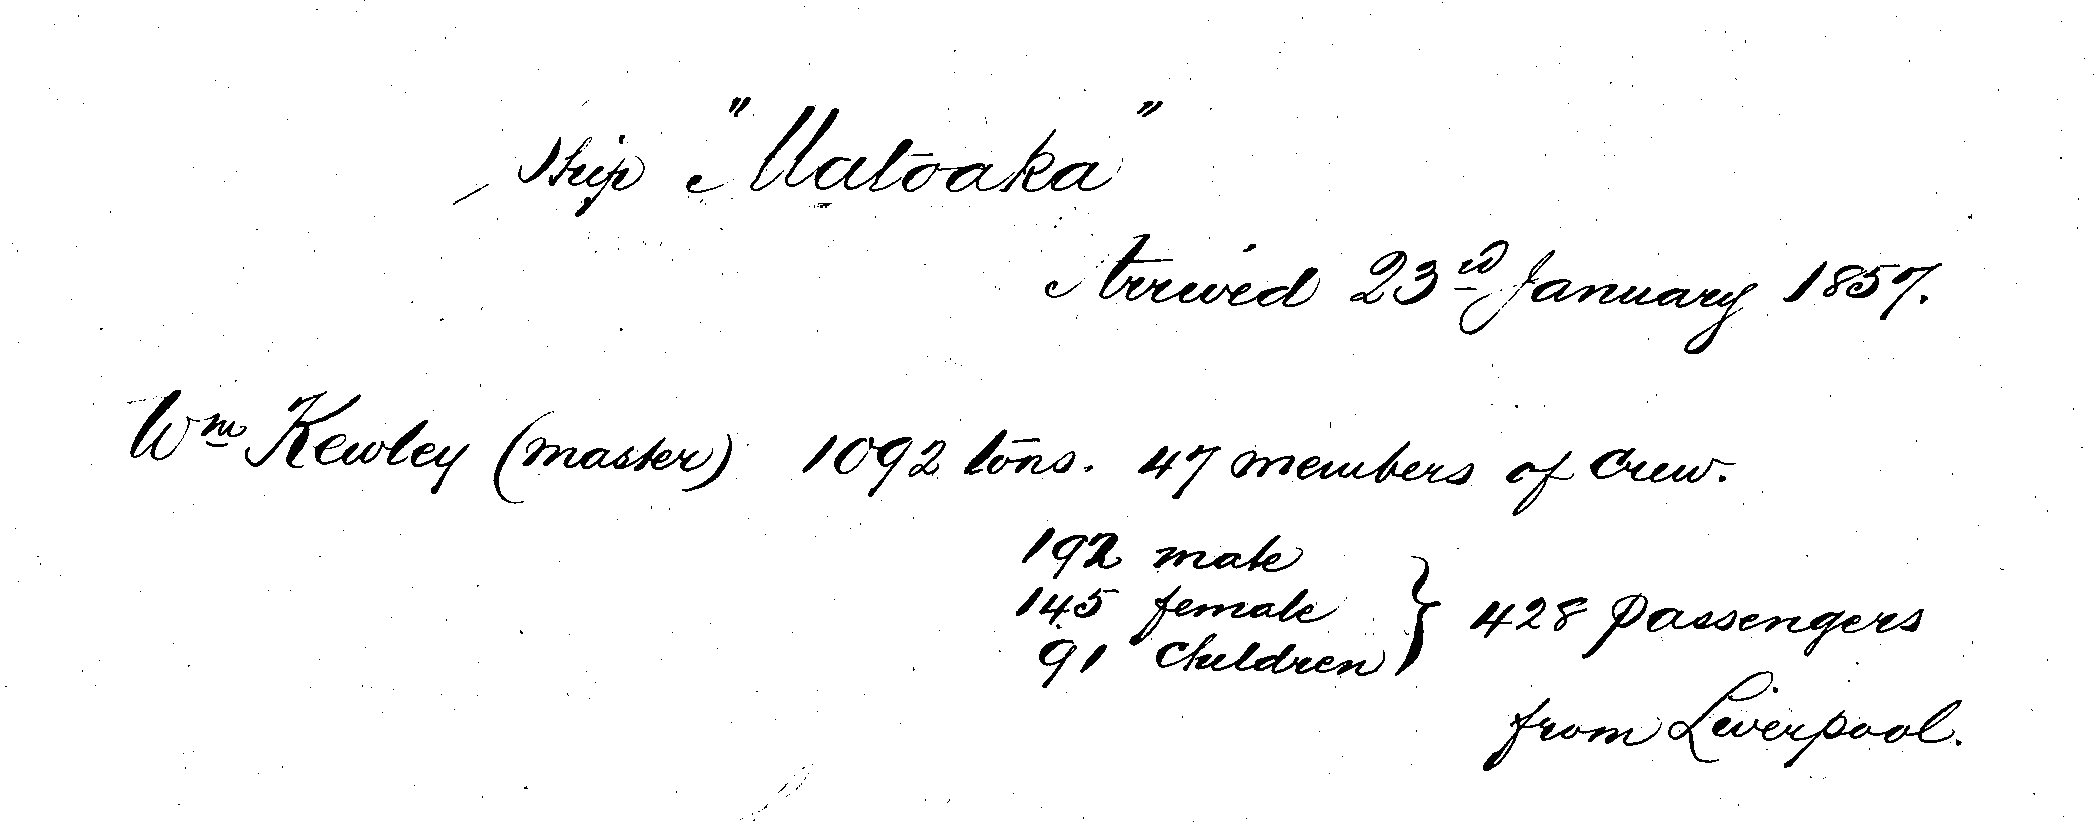 Ship "Matoaka"
Arrived 23rd January 1857.
Wm Kewley (master) 1092 tons. 47 members of Crew.
192 male
145 female
91 Children } 428 passengers
from Liverpool.